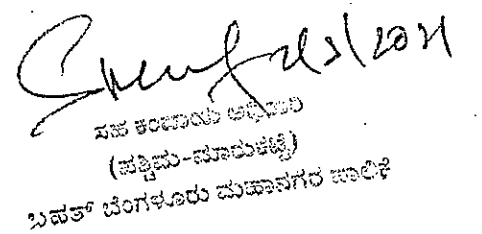 2021
ಸಹ ಕಂದಾಯ ಅಧಿಕಾರಿ
(ಪಶ್ಚಿಮ-ಮಾರುಕಟ್ಟೆ)
ಬೃಹತ್ ಬೆಂಗಳೂರು ಮಹಾನಗರ ಪಾಲಿಕೆ